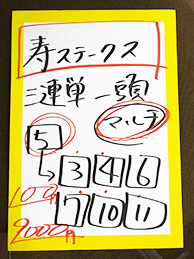 寿ステークス
三連単 一頭
マルチ
5
3 4 6
7 10 11
100円
9000円